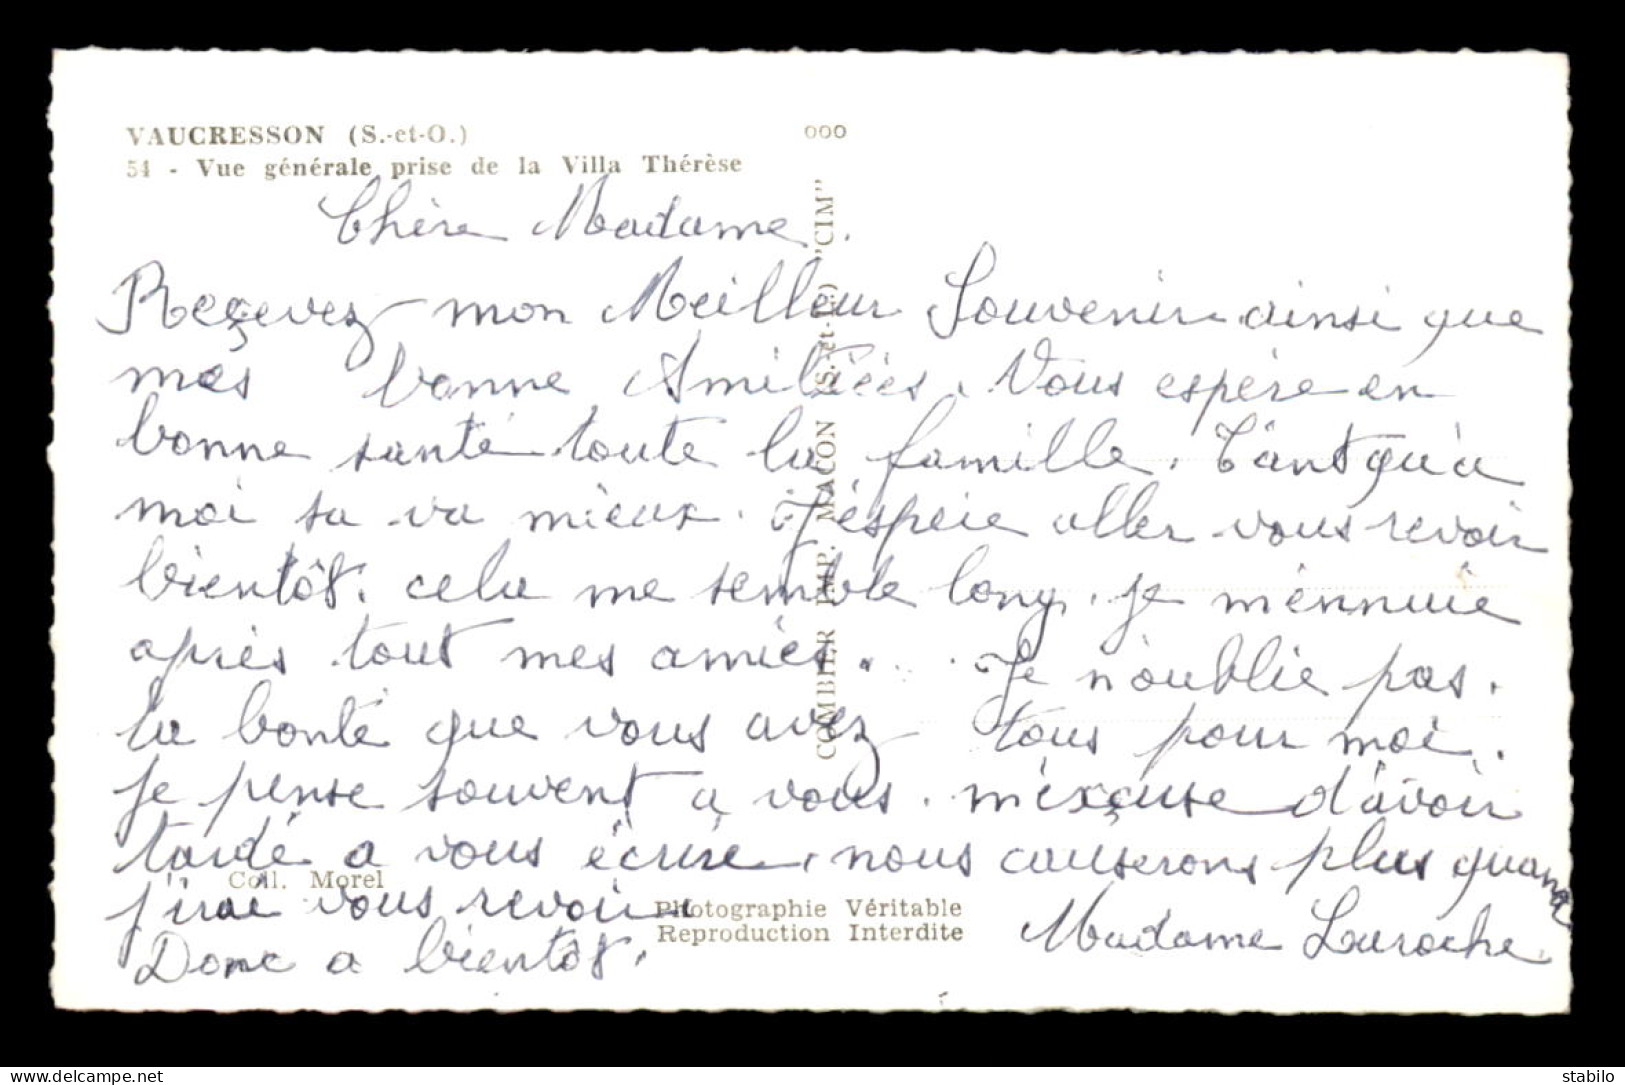 VAUCRESSON (S.-et-O.)
54 - Vue générale prise de la Villa Thérèse
000
COMBIER IMP. MACON (S.-et-L.) "CIM"
Chère Madame.
Reçevez mon Meilleur Souvenir ainsi que
mes bonne Amitiées. Vous espère en
bonne santé toute la famille. Tantqu'a
moi sa va mieux. J'éspère aller vous revoir
bientôt. cela me semble long. je m'ennuie
après tout mes amies. Je n'oublie pas.
la bonté que vous avez tous pour moi.
je pense souvent a vous. m'éxçuse d'avoir
tardé a vous écrire, nous causerons plus quand
j'irai vous revoir
Donc a bientôt.
Madame Laroche.
Coll. Morel
Photographie Véritable
Reproduction Interdite
Delcampe.net
stabilo